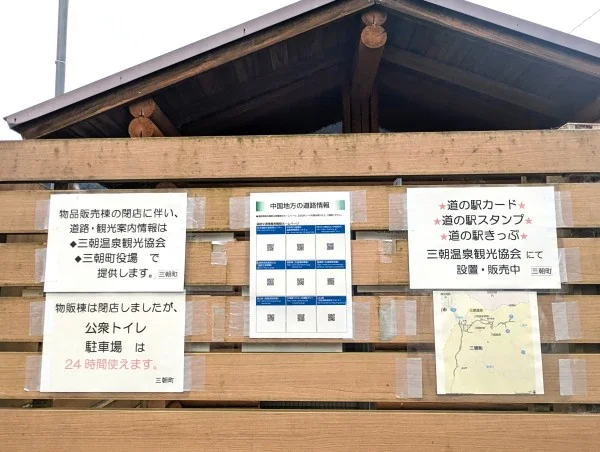 物品販売棟の閉店に伴い、
道路・観光案内情報は
◆三朝温泉観光協会
◆三朝町役場 で
提供します。 三朝町
物販棟は閉店しましたが、
公衆トイレ
駐車場 は
24時間使えます。
三朝町
中国地方の道路情報
★道の駅カード★
★道の駅スタンプ★
★道の駅きっぷ★
三朝温泉観光協会 にて
設置・販売中 三朝町
三朝町